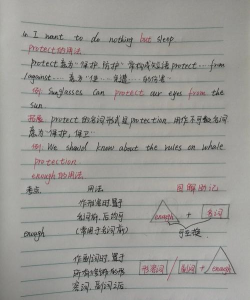 4. I want to do nothing but sleep
protect的用法
protect 意为"保护,防护"常构成短语protect...from
/against... 意为"使...免遭...的伤害"
例: Sunglasses can protect our eyes from the
sun.
拓展 protect的名词形式是protection,用作不可数名词
意为"保护,保卫"
例: We should know about the rules on whale
protection
enough的用法
考点 用法 图解助记
作形容词置于
名词前、后均可
enough (常用于名词前)
enough + 名词
可互换
作副词时,置于
所有修饰的形
容词、副词后
形容词 / 副词 + enough